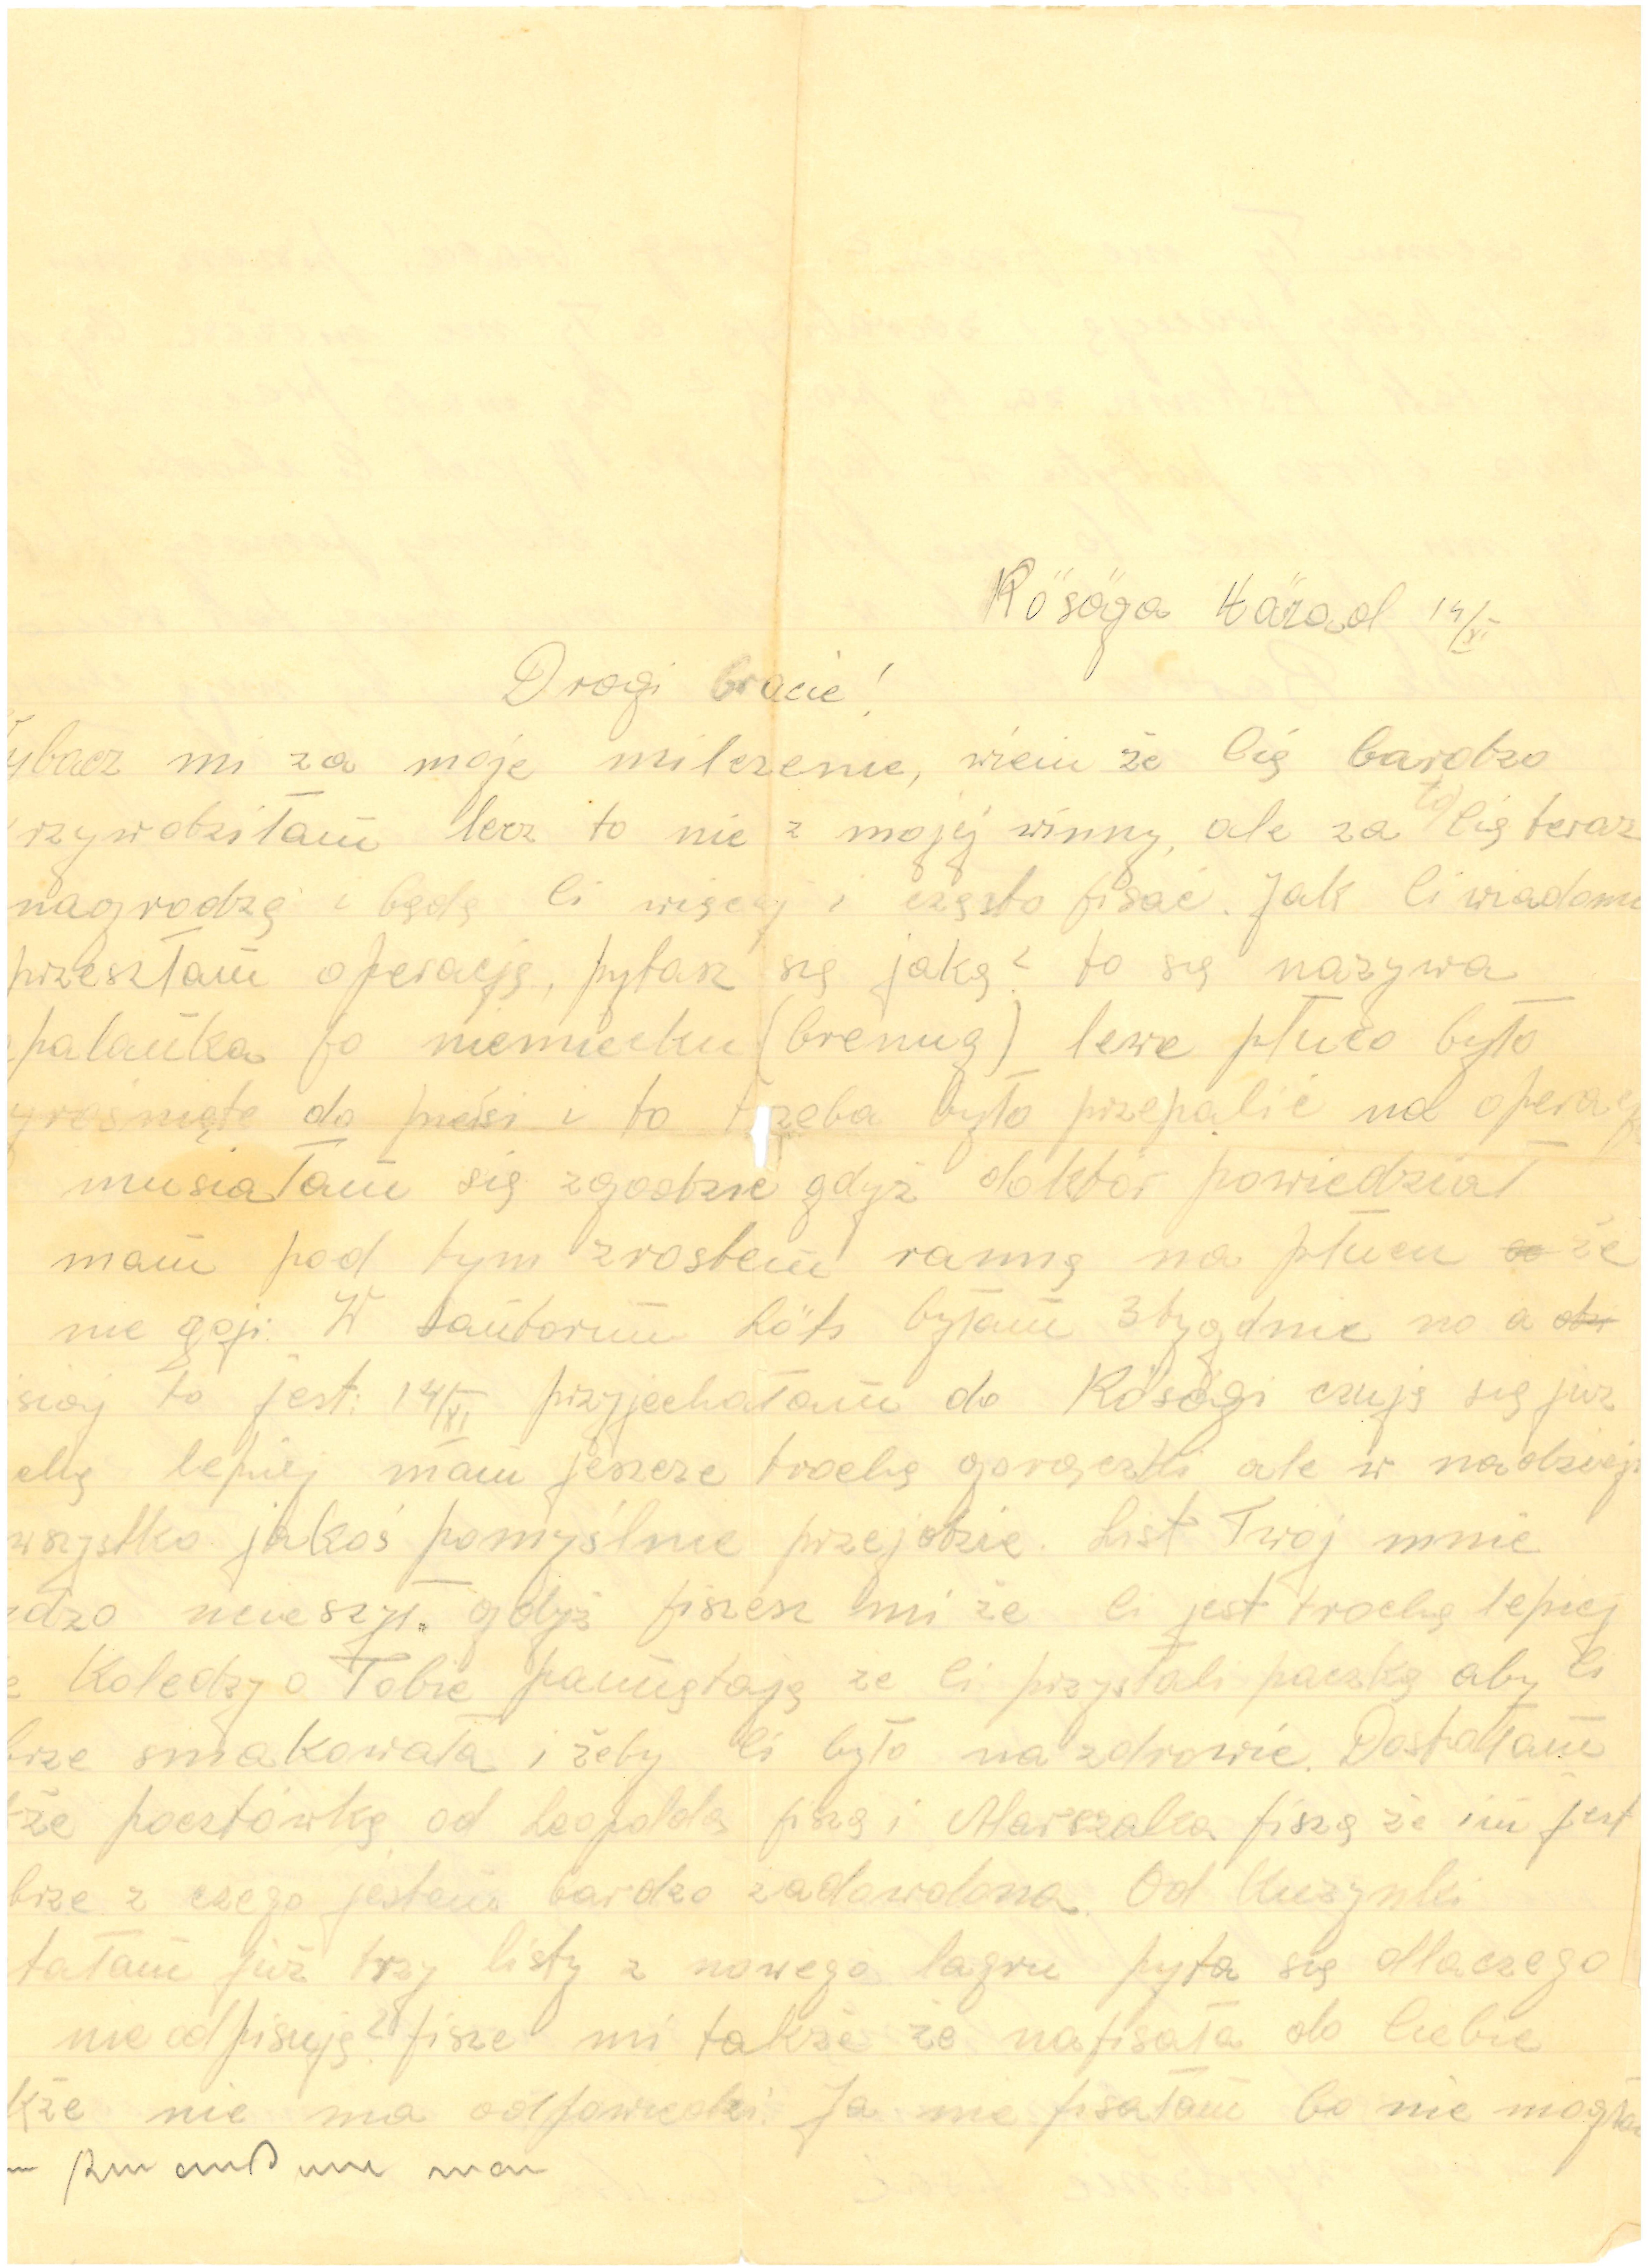 Rösöga Härad 14/XI
Drogi bracie!
ybacz mi za moje milczenie, wiem że Cię bardzo
rzywdziłam lecz to nie z mojej winny, ale za to Cię teraz
nagrodzę i będę Ci więcej i często pisać. Jak Ci wiadomo
przeszłam operację, pytasz się jaką? to się nazywa
palanka po niemiecku (brenug) lewe płuco było
yrośnięte do piersi i to trzeba było przepalić na operacj
musiałam się zgodzić gdyż doktór powiedział
mam pod tym zrostem ranną na płucu że
nie goji. W santorium Löts byłam 3 tygdnie no a
siaj to jest: 14/XI przyjechałam do Rösögi czuję się już
chę lepiej mam jeszcze trochę gorączki ale w nadzieji
wszystko jakoś pomyślnie przejdzie. List Twój mnie
dzo ucieszył. gdyż piszesz mi że Ci jest trochę lepiej
Koledzy o Tobie pamiętają że Ci przysłali paczkę aby Ci
brze smakowała i żeby Ci było na zdrowie. Dostałam
że pocztówkę od Leopolda piszą i Marszalka piszą że im jest
brze z czego jestem bardzo zadowolona. Od Kuzynki
tałam już trzy listy z nowego lagru pyta się dlaczego
nie odpisuję? pisze mi także że napisała do Ciebie
kże nie ma odpowiedzi. Ja nie pisałam bo nie mogła